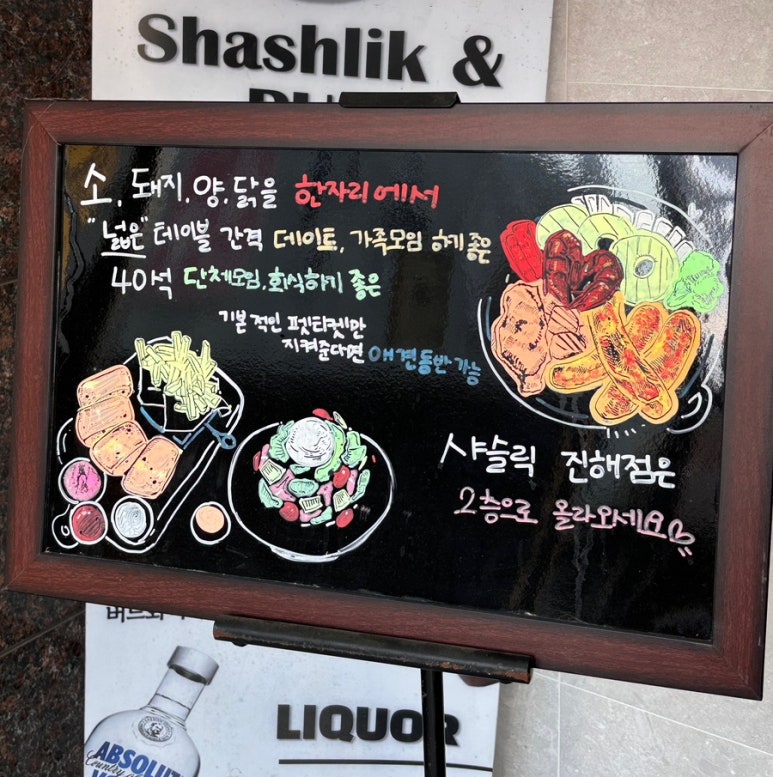 Shashlik &
소, 돼지, 양, 닭을 한자리에서
"넓은" 테이블 간격 데이트, 가족모임 하기 좋은
40석 단체모임, 회식하기 좋은
기본적인 펫티켓만
지켜준다면 애견동반가능
샤슬릭 진해점은
2층으로 올라오세요
LIQUOR
ABSOLUT
Country of